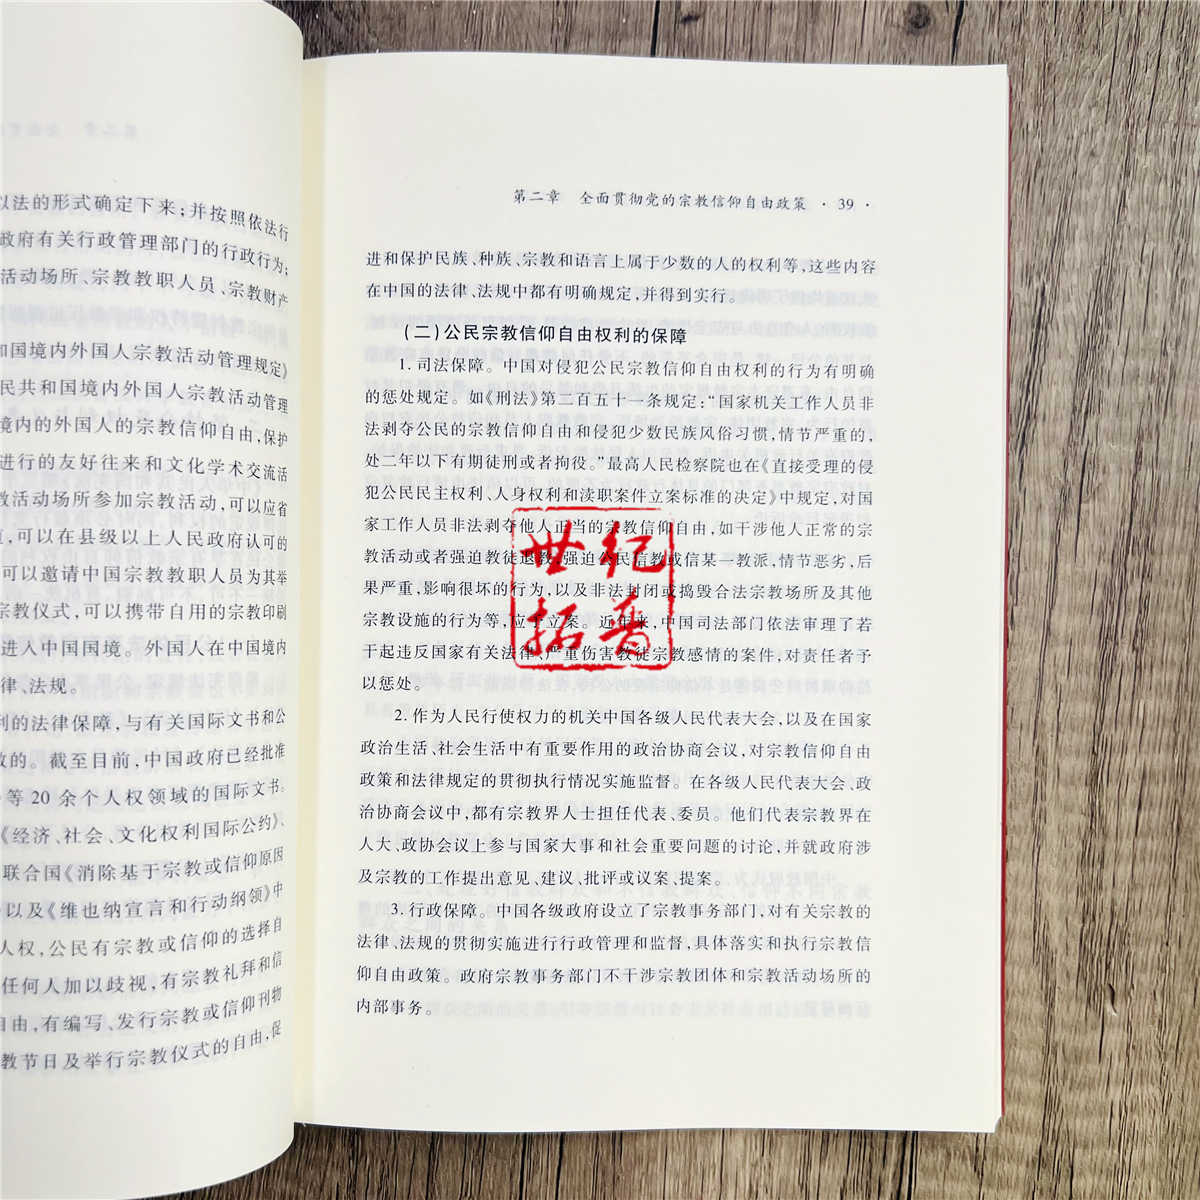 以法的形式确定下来；并按照依法行
政府有关行政管理部门的行政行为；
活动场所、宗教教职人员、宗教财产
和国境内外国人宗教活动管理规定》
民共和国境内外国人宗教活动管理
境内的外国人的宗教信仰自由，保护
进行的友好往来和文化学术交流活
教活动场所参加宗教活动，可以应省
，可以在县级以上人民政府认可的
可以邀请中国宗教教职人员为其举
宗教仪式，可以携带自用的宗教印刷
进入中国国境。外国人在中国境内
律、法规。
利的法律保障，与有关国际文书和公
致的。截至目前，中国政府已经批准
等 20 余个人权领域的国际文书。
《经济、社会、文化权利国际公约》、
联合国《消除基于宗教或信仰原因
以及《维也纳宣言和行动纲领》中
人权，公民有宗教或信仰的选择自
任何人加以歧视，有宗教礼拜和信
自由，有编写、发行宗教或信仰刊物
教节日及举行宗教仪式的自由，促
第二章　全面贯彻党的宗教信仰自由政策 · 39 ·
进和保护民族、种族、宗教和语言上属于少数的人的权利等，这些内容
在中国的法律、法规中都有明确规定，并得到实行。
（二）公民宗教信仰自由权利的保障
1. 司法保障。中国对侵犯公民宗教信仰自由权利的行为有明确
的惩处规定。如《刑法》第二百五十一条规定：“国家机关工作人员非
法剥夺公民的宗教信仰自由和侵犯少数民族风俗习惯，情节严重的，
处二年以下有期徒刑或者拘役。”最高人民检察院也在《直接受理的侵
犯公民民主权利、人身权利和渎职案件立案标准的决定》中规定，对国
家工作人员非法剥夺他人正当的宗教信仰自由，如干涉他人正常的宗
教活动或者强迫教徒退教，强迫公民信教或信某一教派，情节恶劣，后
果严重，影响很坏的行为，以及非法封闭或捣毁合法宗教场所及其他
宗教设施的行为等，应予立案。近年来，中国司法部门依法审理了若
干起违反国家有关法律、严重伤害教徒宗教感情的案件，对责任者予
以惩处。
2. 作为人民行使权力的机关中国各级人民代表大会，以及在国家
政治生活、社会生活中有重要作用的政治协商会议，对宗教信仰自由
政策和法律规定的贯彻执行情况实施监督。在各级人民代表大会、政
治协商会议中，都有宗教界人士担任代表、委员。他们代表宗教界在
人大、政协会议上参与国家大事和社会重要问题的讨论，并就政府涉
及宗教的工作提出意见、建议、批评或议案、提案。
3. 行政保障。中国各级政府设立了宗教事务部门，对有关宗教的
法律、法规的贯彻实施进行行政管理和监督，具体落实和执行宗教信
仰自由政策。政府宗教事务部门不干涉宗教团体和宗教活动场所的
内部事务。
世纪
拓普